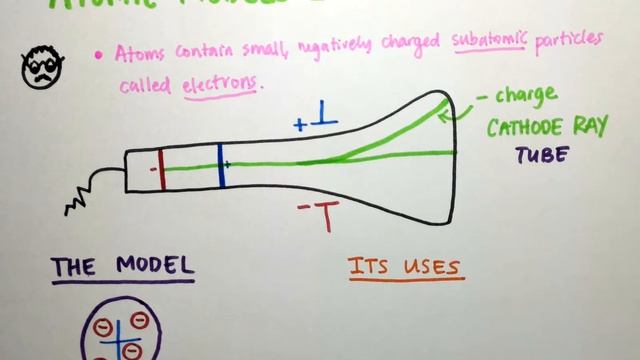 ATOMIC MODELS
• Atoms contain small, negatively charged subatomic particles
called electrons.
+
- charge
CATHODE RAY
TUBE
-
+
-
THE MODEL
ITS USES
-
-
-